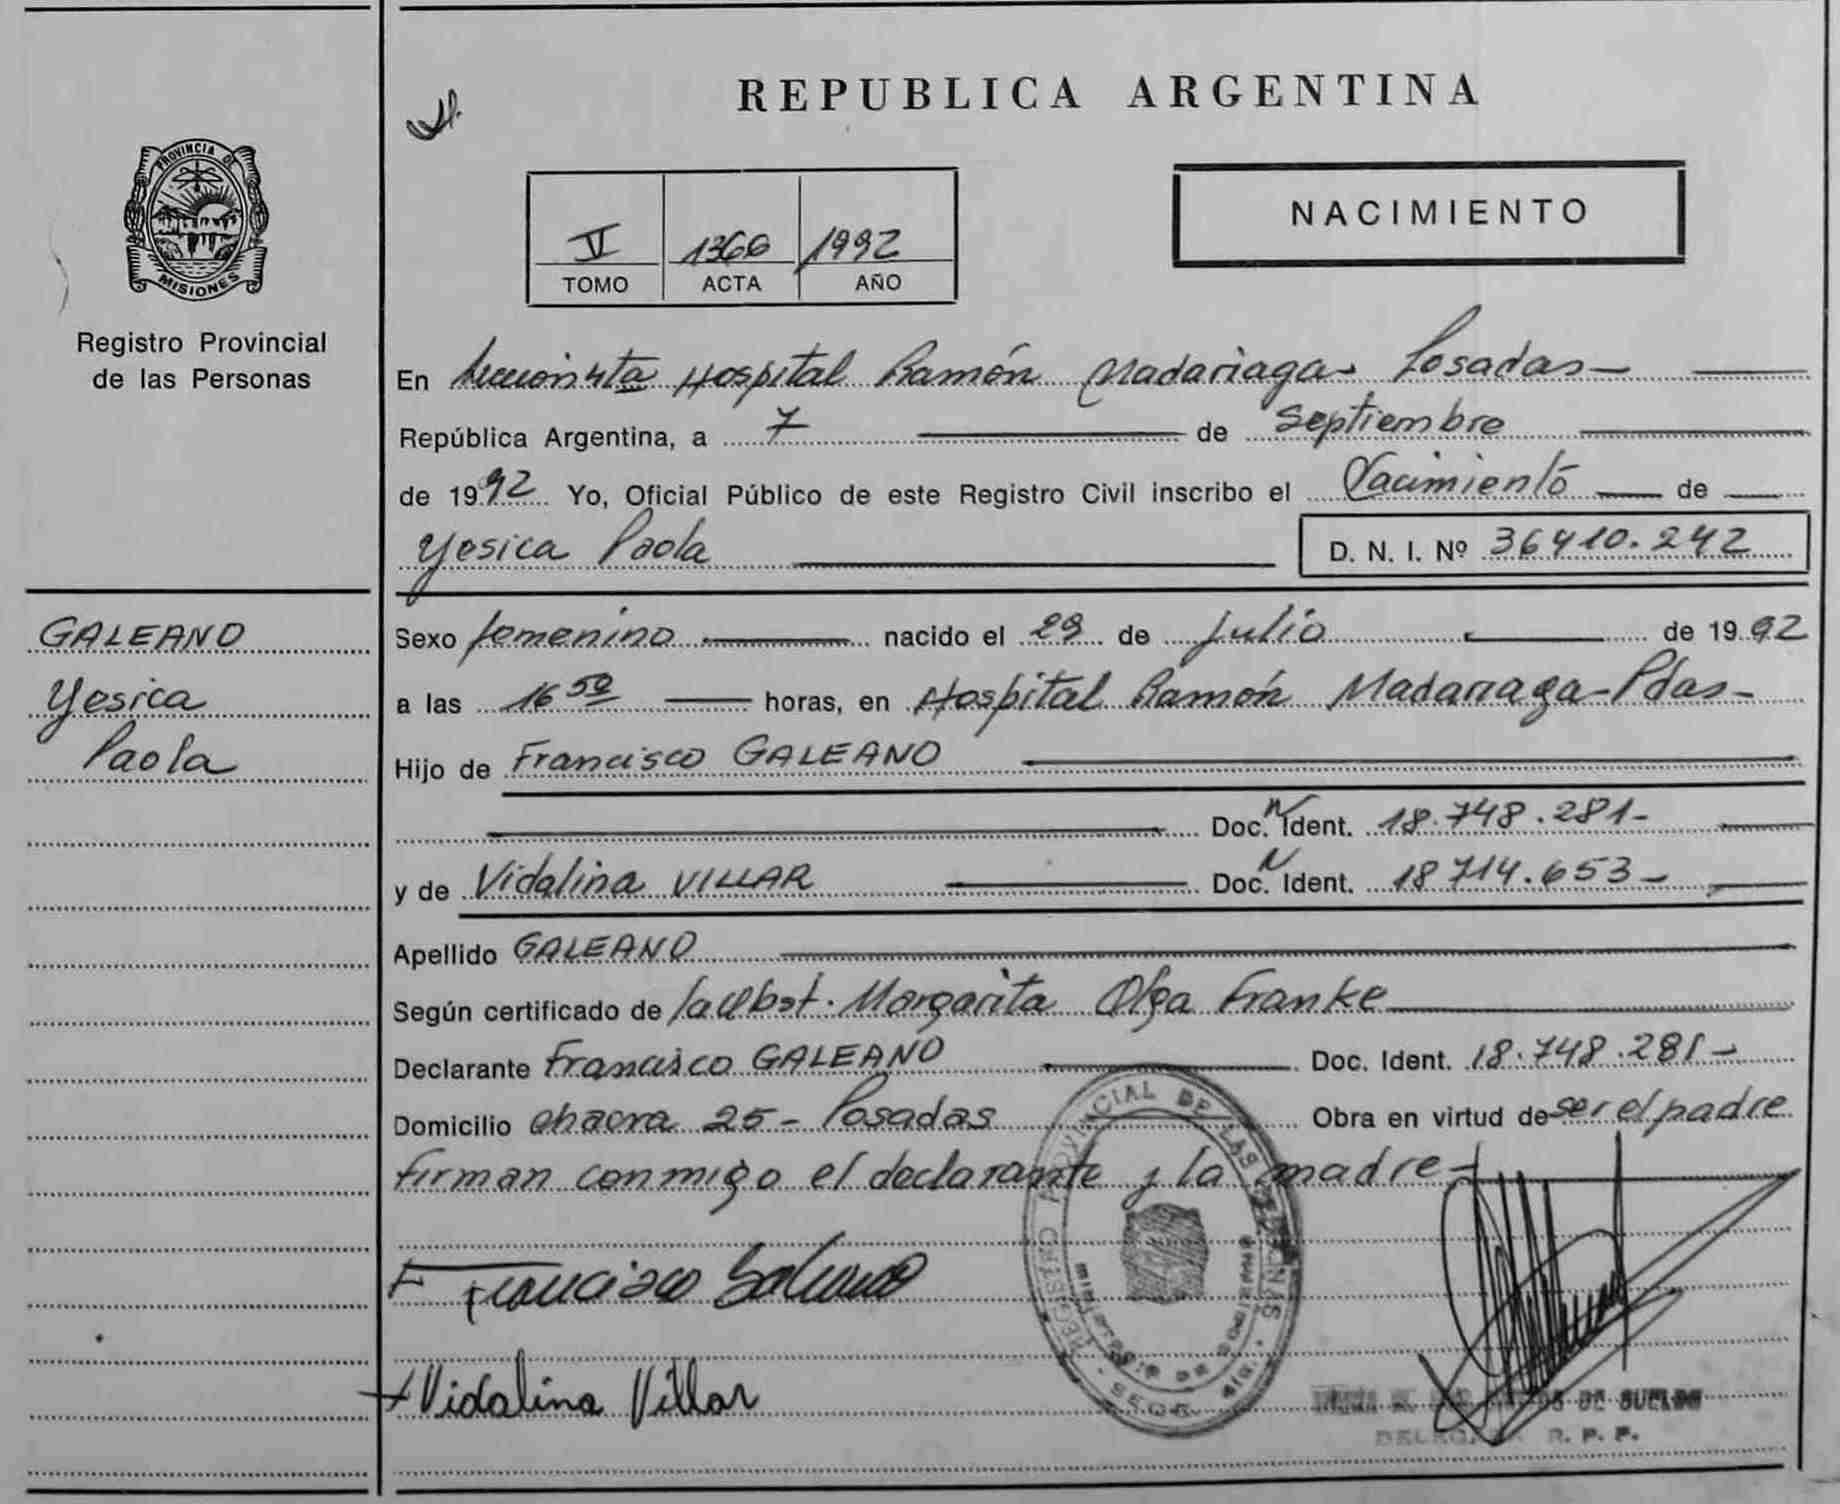 REPUBLICA ARGENTINA
PROVINCIA DE
MISIONES
Registro Provincial
de las Personas
V 1366 1992
TOMO ACTA AÑO
NACIMIENTO
En Sección 4ta Hospital Ramón Madariaga - Posadas -
República Argentina, a 7 de Septiembre
de 1992 Yo, Oficial Público de este Registro Civil inscribo el Nacimiento de
Yesica Paola D. N. I. Nº 36410.242
GALEANO
Yesica
Paola
Sexo femenino nacido el 29 de julio de 1992
a las 16 50 horas, en Hospital Ramón Madariaga - Pdas -
Hijo de Francisco GALEANO
Doc. N Ident. 18.748.281 -
y de Vidalina VILLAR Doc. N Ident. 18 714.653 -
Apellido GALEANO
Según certificado de la Obst. Margarita Olga Franke
Declarante Francisco GALEANO Doc. Ident. 18.748.281 -
Domicilio chacra 25 - Posadas Obra en virtud de ser el padre
firman conmigo el declarante y la madre -
Francisco Galeano
Vidalina Villar
REGISTRO PROVINCIAL DE LAS PERSONAS
MINISTERIO DE GOBIERNO
DE SUELDO
R. P. P.